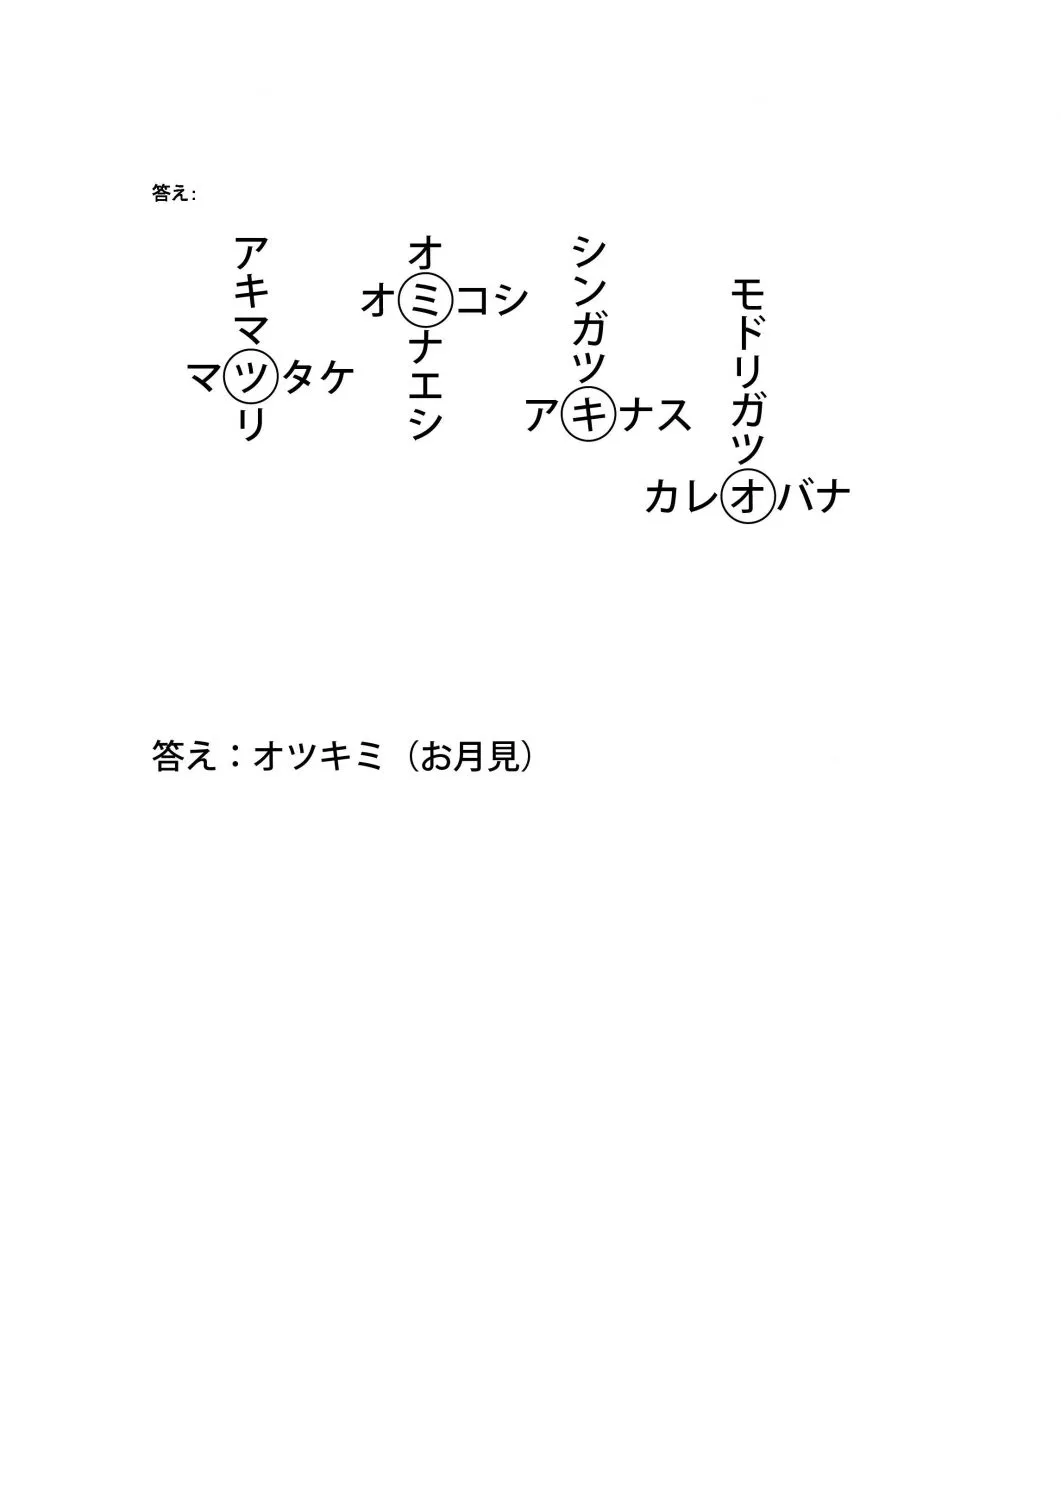 答え：
アキマツリ
マツタケ
オミナエシ
オミコシ
シンガツキ
アキナス
モドリガツオ
カレオバナ
答え：オツキミ（お月見）